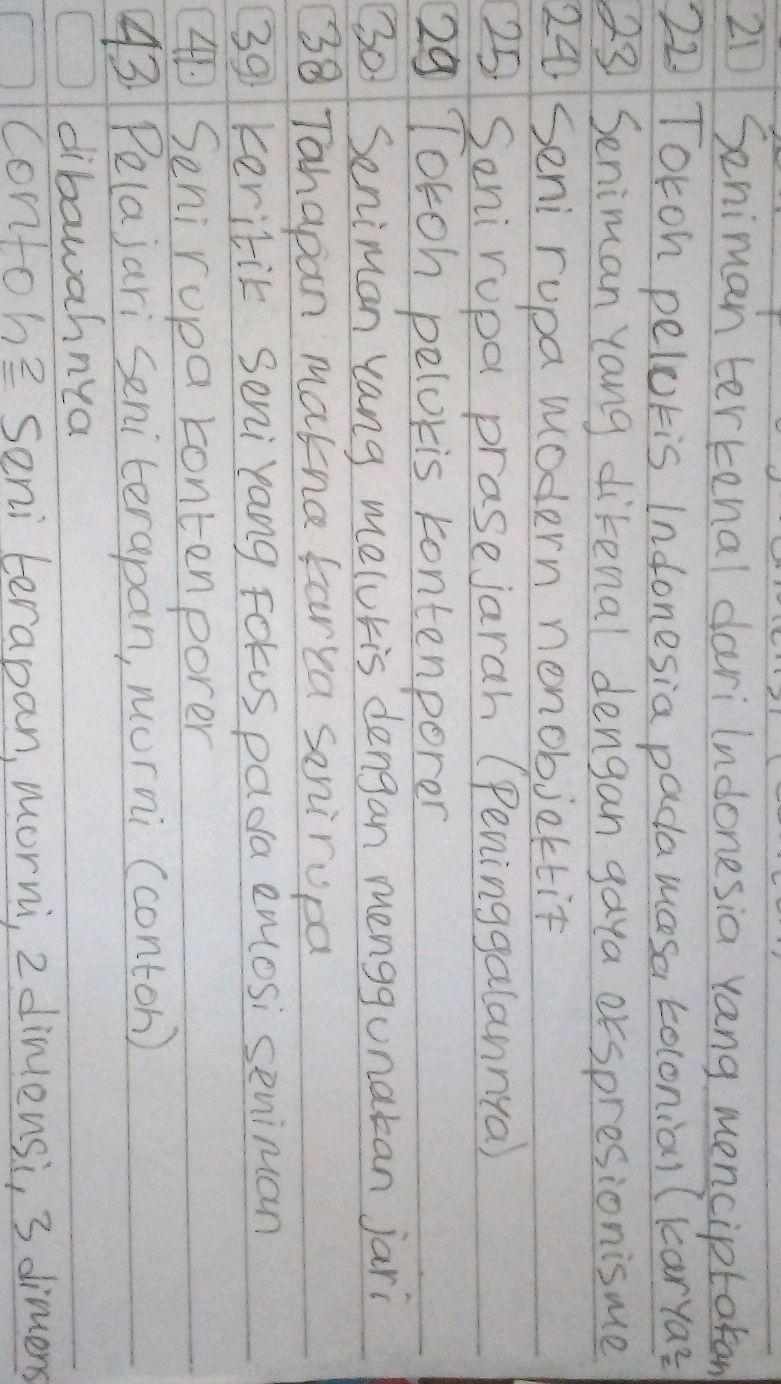 21 Seniman terkenal dari Indonesia yang menciptakan
22. Tokoh pelukis Indonesia pada masa kolonial (karya²
23 Seniman yang dikenal dengan gaya ekspresionisme
24. Seni rupa modern nonobjektif
25. Seni rupa prasejarah (Peninggalannya)
29 Tokoh pelukis kontenporer
30. Seniman yang melukis dengan menggunakan jari
38 Tahapan makna karya seni rupa
39. keritik seni yang Fokus pada emosi seniman
41. Seni rupa kontenporer
43. Pelajari seni terapan, murni (contoh)
dibawahnya
Contoh² seni terapan, murni, 2 dimensi, 3 dimens